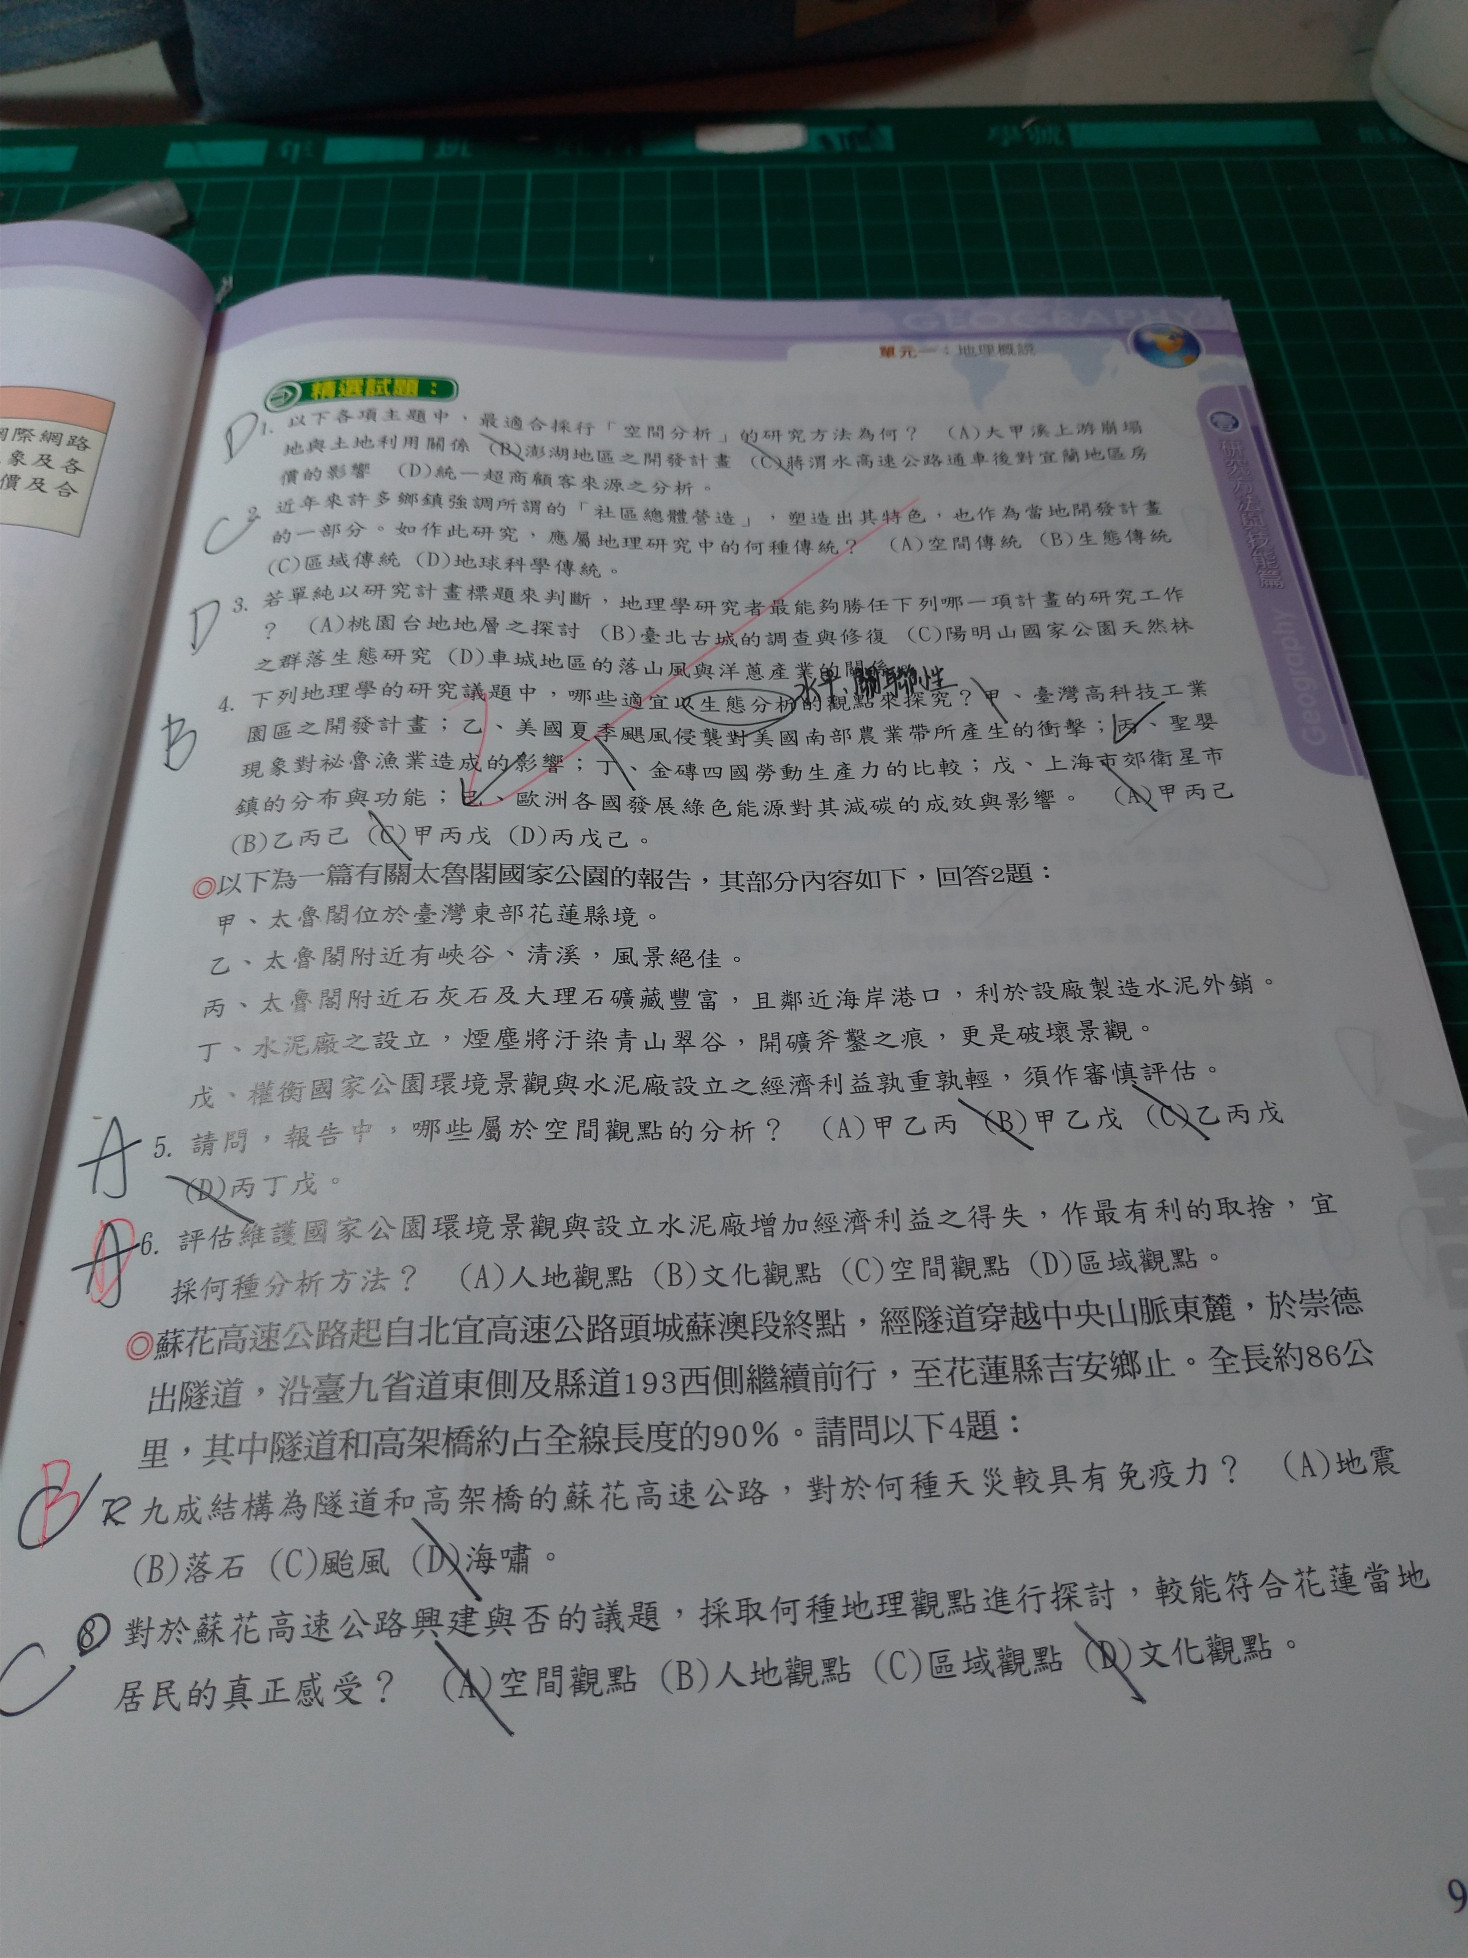 年 班 學號
GEOGRAPHY
單元一：地理概說
研究方法與技能篇
Geography
際網路
象及各
價及合
精選試題：
D 1. 以下各項主題中，最適合採行「空間分析」的研究方法為何？ (A)大甲溪上游崩塌
地與土地利用關係 (B)澎湖地區之開發計畫 (C)蔣渭水高速公路通車後對宜蘭地區房
價的影響 (D)統一超商顧客來源之分析。
C 2. 近年來許多鄉鎮強調所謂的「社區總體營造」，塑造出其特色，也作為當地開發計畫
的一部分。如作此研究，應屬地理研究中的何種傳統？ (A)空間傳統 (B)生態傳統
(C)區域傳統 (D)地球科學傳統。
D 3. 若單純以研究計畫標題來判斷，地理學研究者最能夠勝任下列哪一項計畫的研究工作
？ (A)桃園台地地層之探討 (B)臺北古城的調查與修復 (C)陽明山國家公園天然林
之群落生態研究 (D)車城地區的落山風與洋蔥產業的關係。
水平、關聯性
B 4. 下列地理學的研究議題中，哪些適宜以生態分析的觀點來探究？甲、臺灣高科技工業
園區之開發計畫；乙、美國夏季颶風侵襲對美國南部農業帶所產生的衝擊；丙、聖嬰
現象對祕魯漁業造成的影響；丁、金磚四國勞動生產力的比較；戊、上海市郊衛星市
鎮的分布與功能；己、歐洲各國發展綠色能源對其減碳的成效與影響。 (A)甲丙己
(B)乙丙己 (C)甲丙戊 (D)丙戊己。
◎以下為一篇有關太魯閣國家公園的報告，其部分內容如下，回答2題：
甲、太魯閣位於臺灣東部花蓮縣境。
乙、太魯閣附近有峽谷、清溪，風景絕佳。
丙、太魯閣附近石灰石及大理石礦藏豐富，且鄰近海岸港口，利於設廠製造水泥外銷。
丁、水泥廠之設立，煙塵將汙染青山翠谷，開礦斧鑿之痕，更是破壞景觀。
戊、權衡國家公園環境景觀與水泥廠設立之經濟利益孰重孰輕，須作審慎評估。
A 5. 請問，報告中，哪些屬於空間觀點的分析？ (A)甲乙丙 (B)甲乙戊 (C)乙丙戊
(D)丙丁戊。
A D 6. 評估維護國家公園環境景觀與設立水泥廠增加經濟利益之得失，作最有利的取捨，宜
採何種分析方法？ (A)人地觀點 (B)文化觀點 (C)空間觀點 (D)區域觀點。
◎蘇花高速公路起自北宜高速公路頭城蘇澳段終點，經隧道穿越中央山脈東麓，於崇德
出隧道，沿臺九省道東側及縣道193西側繼續前行，至花蓮縣吉安鄉止。全長約86公
里，其中隧道和高架橋約占全線長度的90%。請問以下4題：
C B 7. 九成結構為隧道和高架橋的蘇花高速公路，對於何種天災較具有免疫力？ (A)地震
(B)落石 (C)颱風 (D)海嘯。
C 8. 對於蘇花高速公路興建與否的議題，採取何種地理觀點進行探討，較能符合花蓮當地
居民的真正感受？ (A)空間觀點 (B)人地觀點 (C)區域觀點 (D)文化觀點。
9